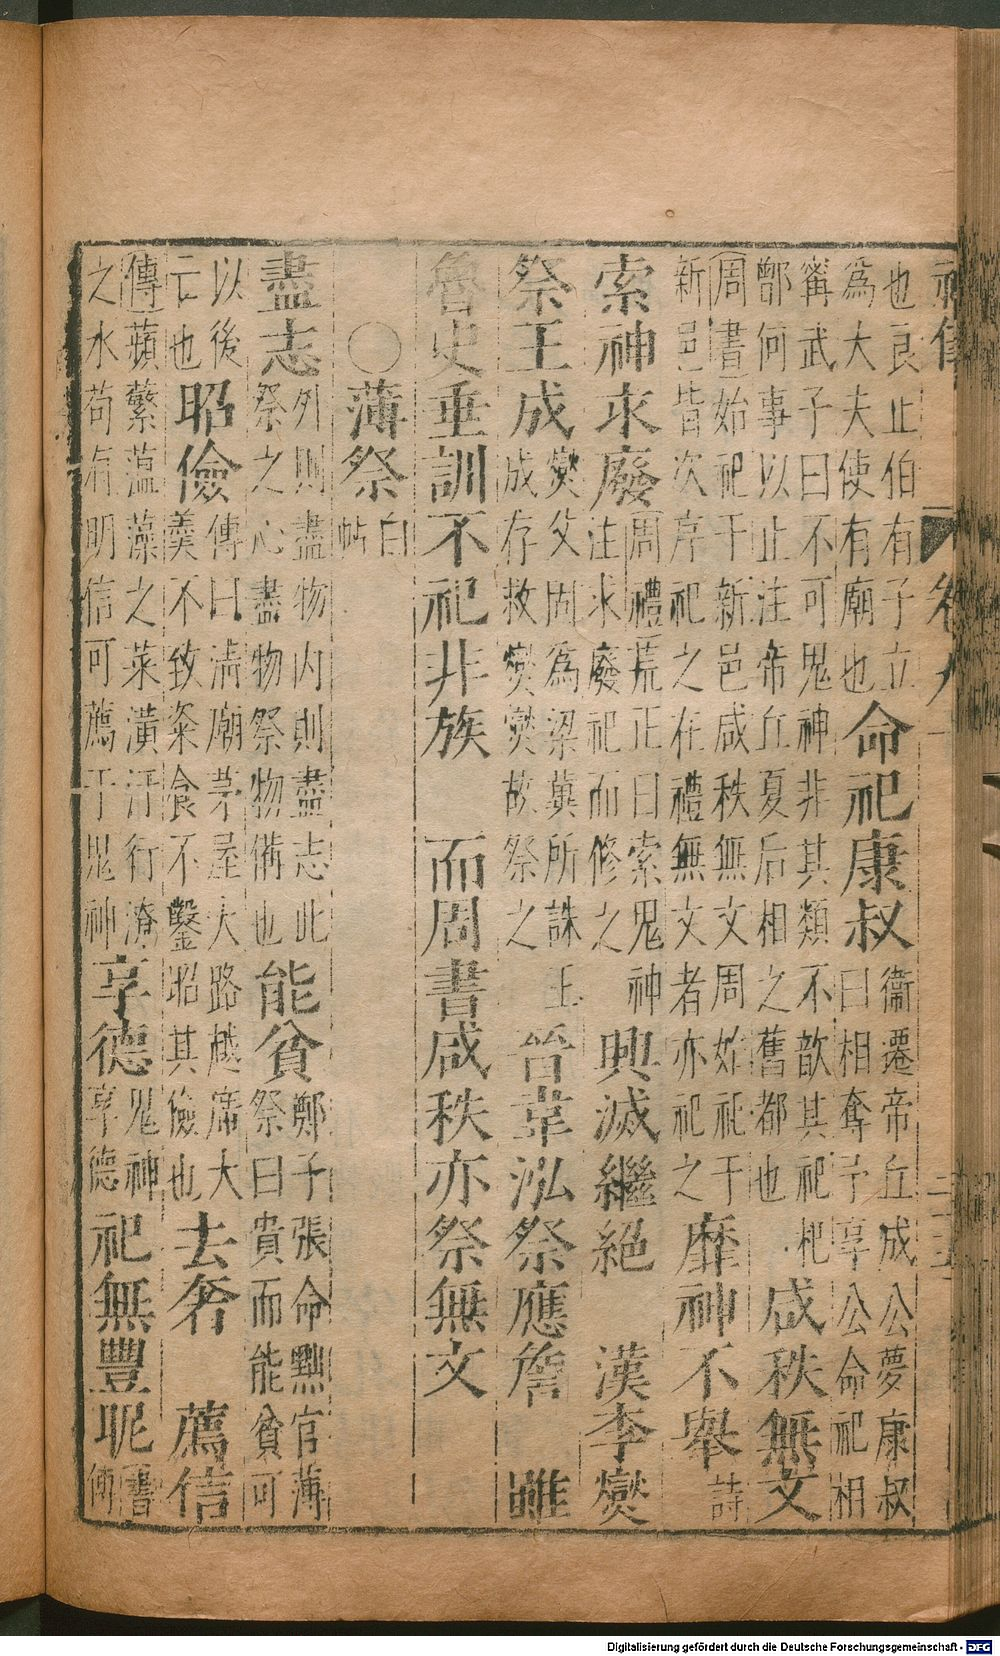 也良止伯有有子立為大夫使有廟也命祀康叔衞遷帝丘成公夢康叔曰相奪予享公命祀相
寗武子曰不可鬼神非其類不歆其祀杞鄫何事以止注帝丘夏后相之舊都也咸秩無文
周書始祀于新邑咸秩無文周始祀于新邑皆次序祀之在禮無文者亦祀之靡神不舉詩
索神求廢周禮荒正曰索鬼神注求廢祀而修之興滅繼絕 漢李燮
祭王成燮父固為梁冀所誅王成存救燮燮故祭之晉韋泓祭應詹 雖
魯史垂訓不祀非族 而周書咸秩亦祭無文
○薄祭白帖
盡志外則盡物内則盡志此祭之心盡物祭物備也能貧鄭子張命黜官薄祭曰貴而能貧可
以後亡也昭儉傳曰清廟茅屋大路越席大羹不致粢食不鑿昭其儉也去奢 薦信
傳蘋蘩薀藻之菜潢汙行潦之水苟有明信可薦于鬼神享德鬼神享德祀無豐昵書
Digitalisierung gefördert durch die Deutsche Forschungsgemeinschaft - DFG